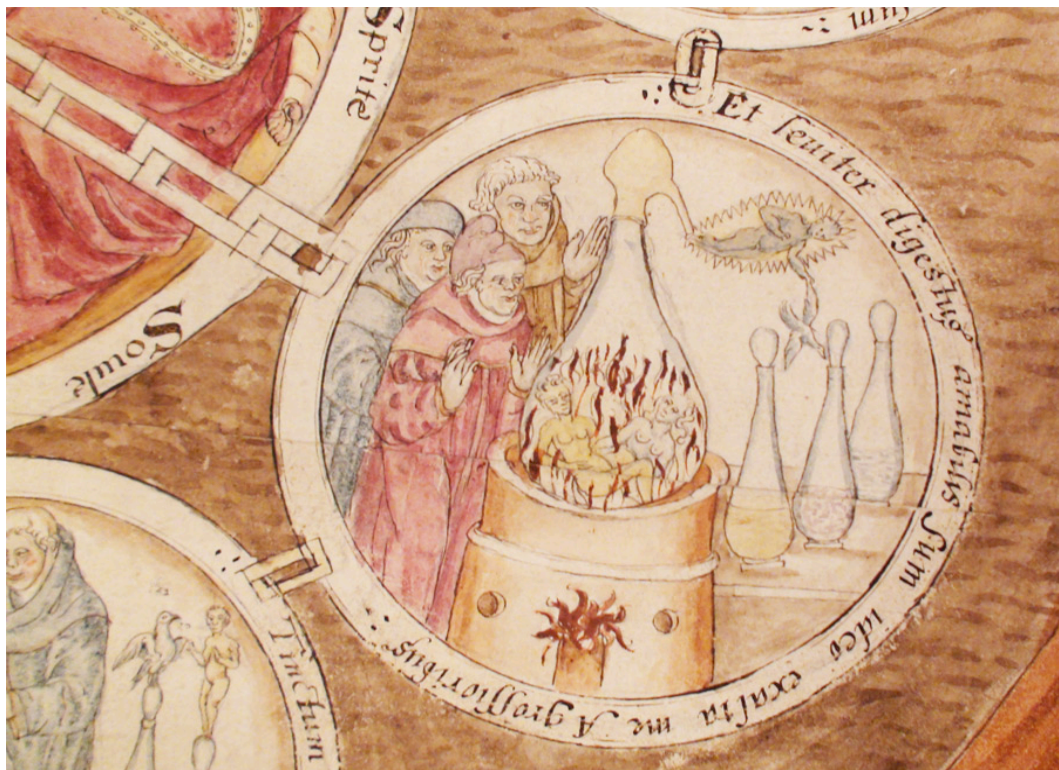 Sprite
Soule
Et leuiter digestus amabilys sum ideo exalta me A grossioribus
Tinctum